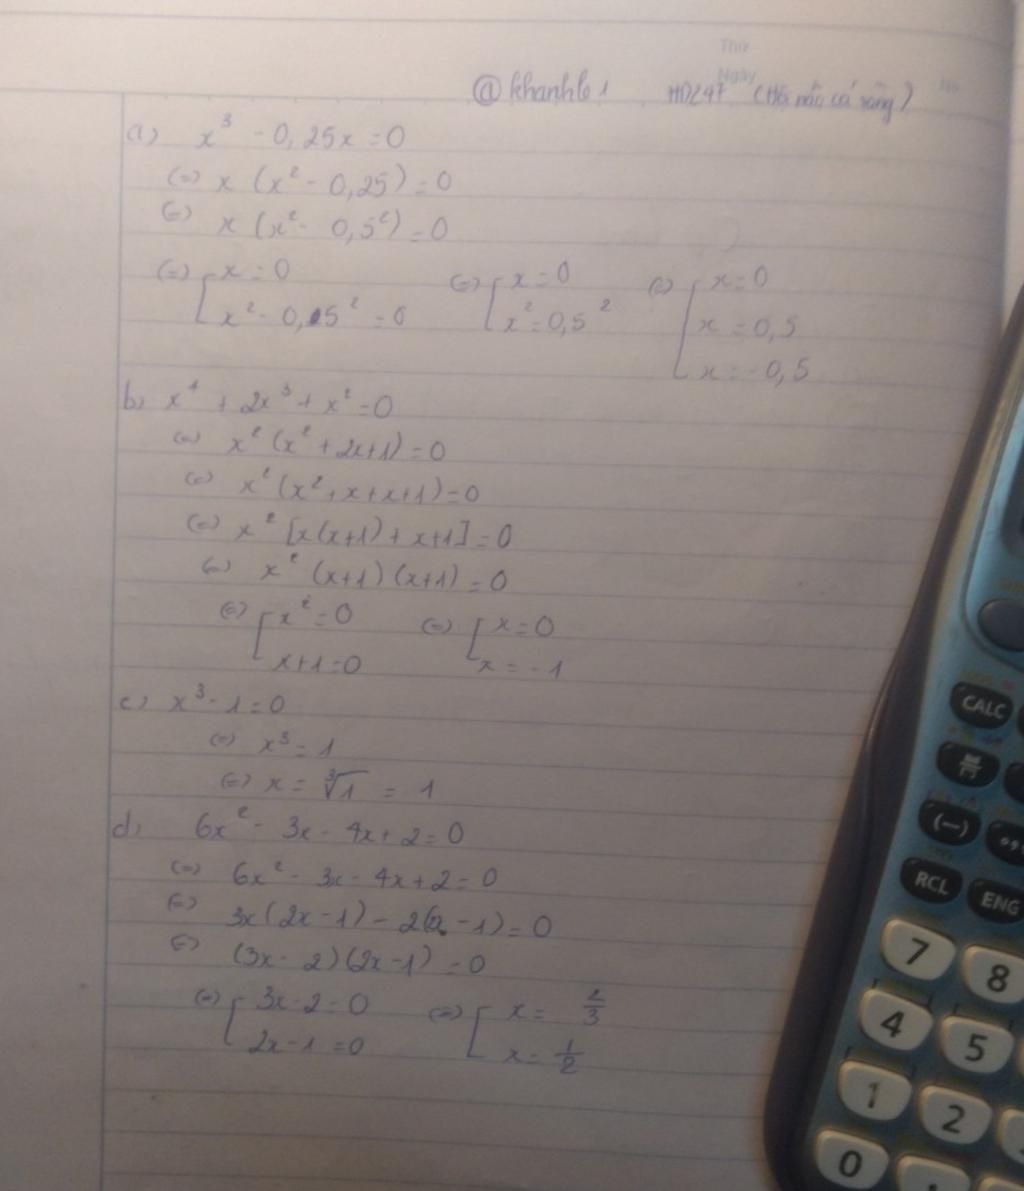 Thứ
Ngày No
@khanhle1 HD247 (Hội
a) x³ - 0,25x = 0
(=) x (x² - 0,25) = 0
(=) x (x² - 0,5²) = 0
(=) [ x = 0 (=) [ x = 0 (=) [ x = 0
x² - 0,5² = 0 x² = 0,5² x = 0,5
x = -0,5
b) x⁴ + 2x³ + x² = 0
(=) x² (x² + 2x+1) = 0
(=) x² (x² + x + x + 1) = 0
(=) x² [x(x+1) + x+1] = 0
(=) x² (x+1) (x+1) = 0
(=) [ x² = 0 (=) [ x = 0
x+1 = 0 x = -1
c) x³ - 1 = 0
(=) x³ = 1
(=) x = ∛1 = 1
d) 6x² - 3x - 4x + 2 = 0
(=) 6x² - 3x - 4x + 2 = 0
(=) 3x (2x - 1) - 2(2 - 1) = 0
(=) (3x - 2) (2x - 1) = 0
(=) [ 3x - 2 = 0 (=) [ x = 2/3
2x - 1 = 0 x = 1/2
CALC
(-)
RCL ENG
7 8
4 5
1 2
0